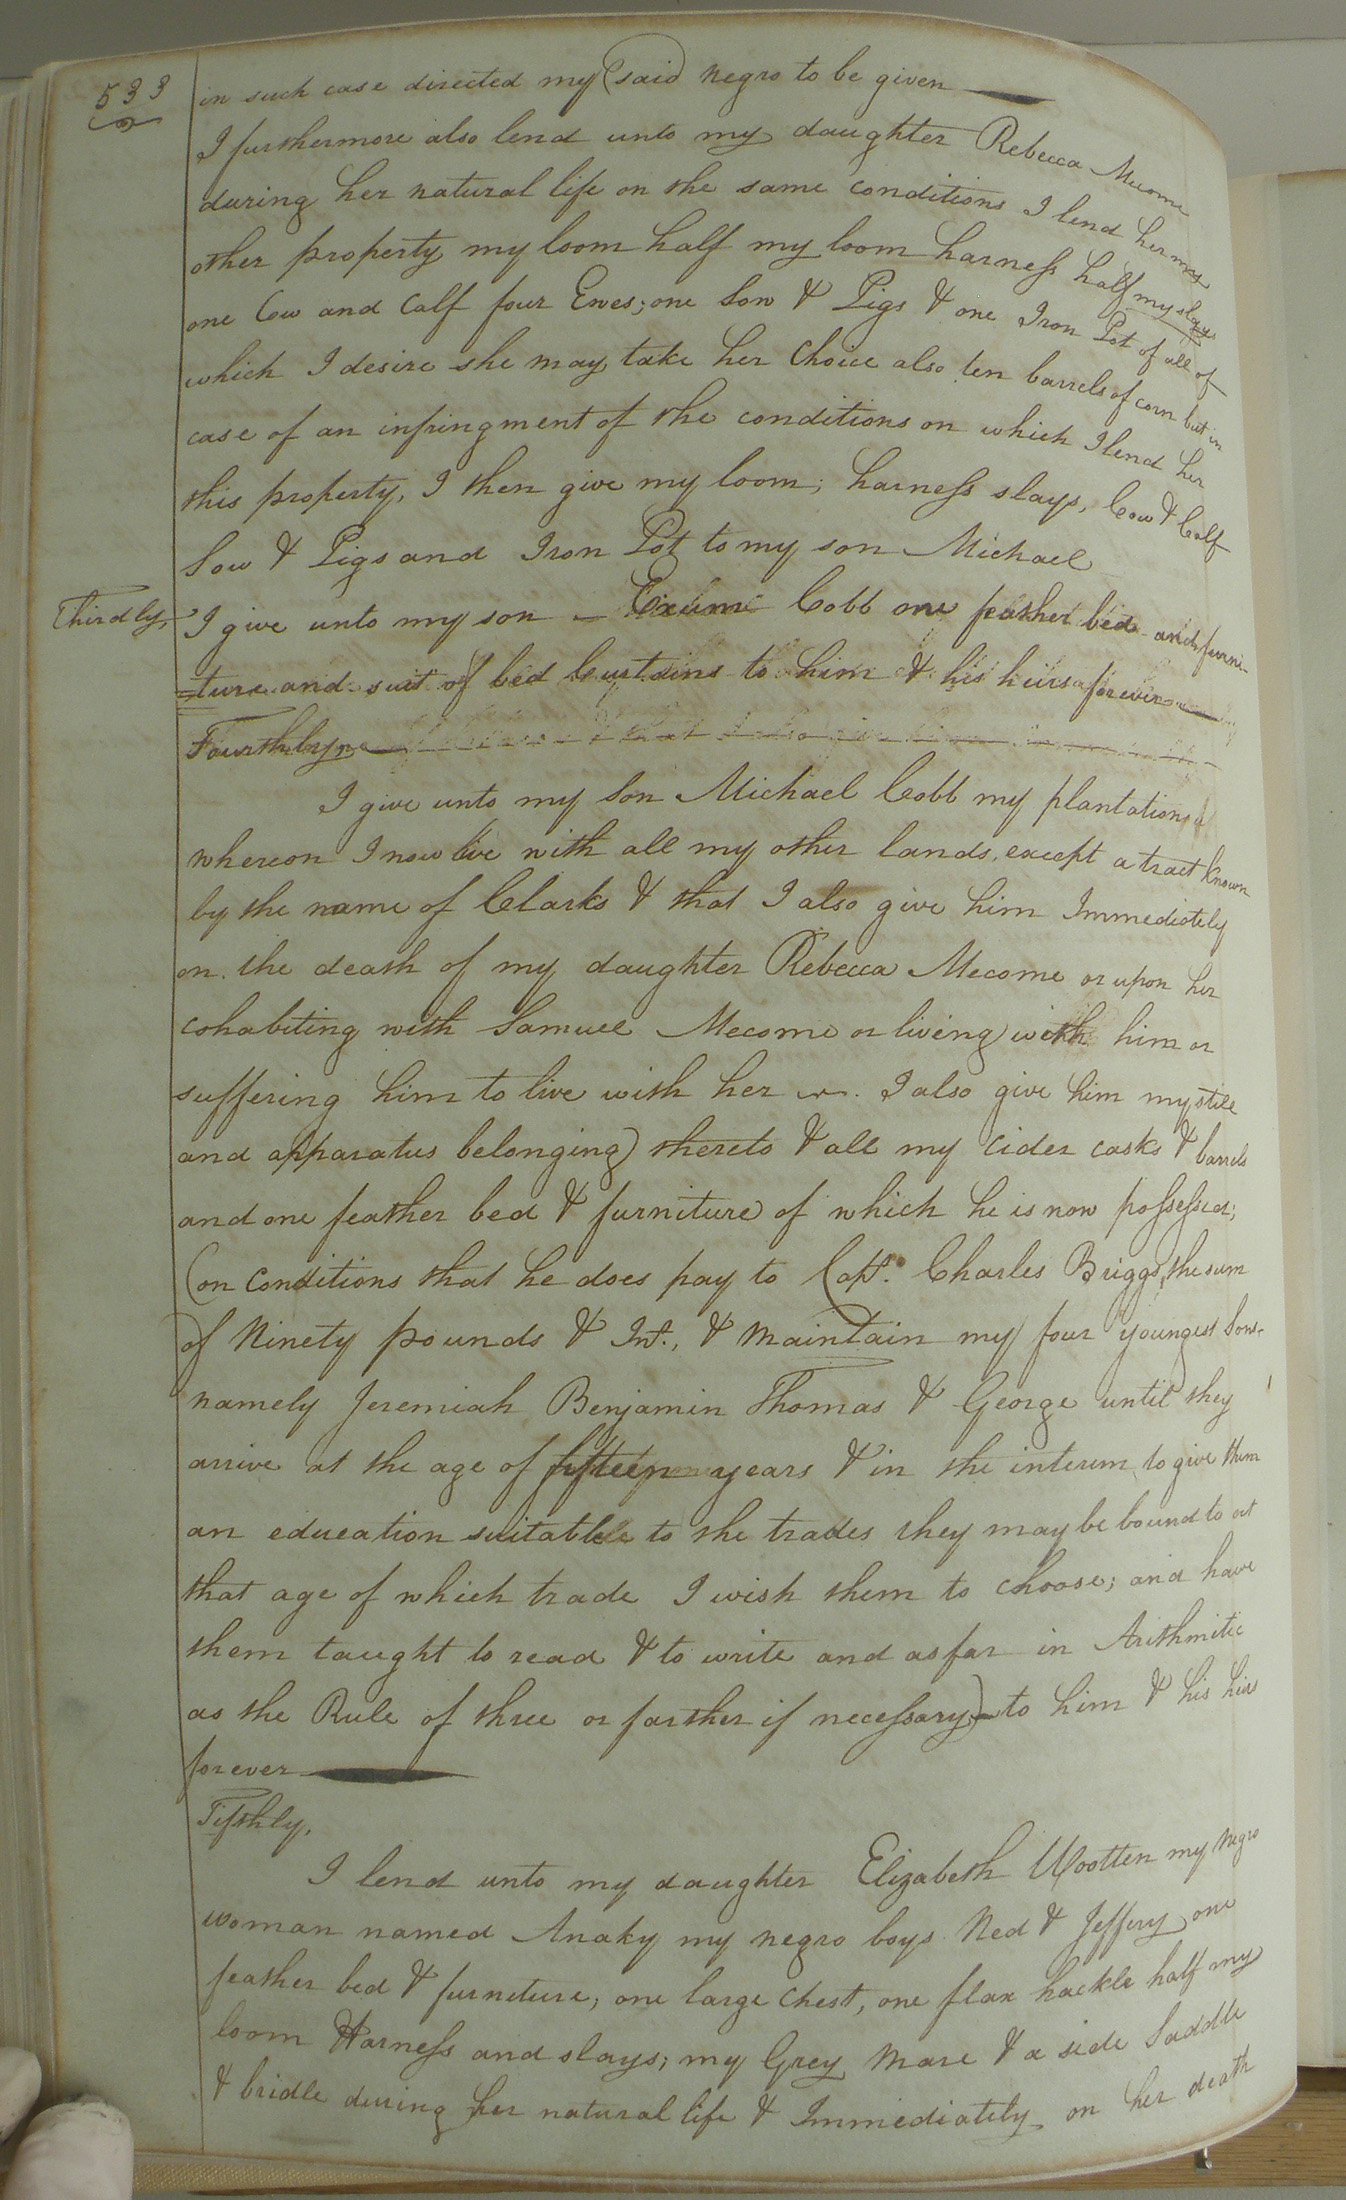 533
in such case directed my said negro to be given
I furthermore also lend unto my daughter Rebecca Mecome
during her natural life on the same conditions I lend her my
other property my loom half my loom harness half my slays
one Cow and Calf four Ewes; one Sow & Pigs & one Iron Pot of all of
which I desire she may take her Choice also ten barrels of corn but in
case of an infringment of the conditions on which I lend her
this property, I then give my loom; harness slays, Cow & Calf
Sow & Pigs and Iron Pot to my son Michael
Thirdly, I give unto my son Exum Cobb one feather bed and furni-
=ture and suit of bed Curtains to him & his heirs forever
Fourthly
I give unto my Son Michael Cobb my plantation
whereon I now live with all my other lands, except a tract known
by the name of Clarks & that I also give him Immediately
on the death of my daughter Rebecca Mecome or upon her
cohabiting with Samuel Mecome or living with him or
suffering him to live with her. I also give him my still
and apparatus belonging thereto & all my Cider casks & barrels
and one feather bed & furniture of which he is now possessed;
(on Conditions that he does pay to Capt. Charles Briggs, the sum
of Ninety pounds & Int., & Maintain my four youngest Sons-
namely Jeremiah Benjamin Thomas & George until they
arrive at the age of fifteen years & in the interim to give them
an education suitable to the trades they may be bound to at
that age of which trade I wish them to choose; and have
them taught to read & to write and as far in Arithmitic
as the Rule of three or farther if necessary) to him & his heirs
forever
Fifthly,
I lend unto my daughter Elizabeth Wootten my negro
woman named Anaky my negro boys Ned & Jeffery one
feather bed & furniture; one large Chest, one flax hackle half my
loom Harness and slays; my Grey Mare & a side Saddle
& bridle during her natural life & Immediately on her death